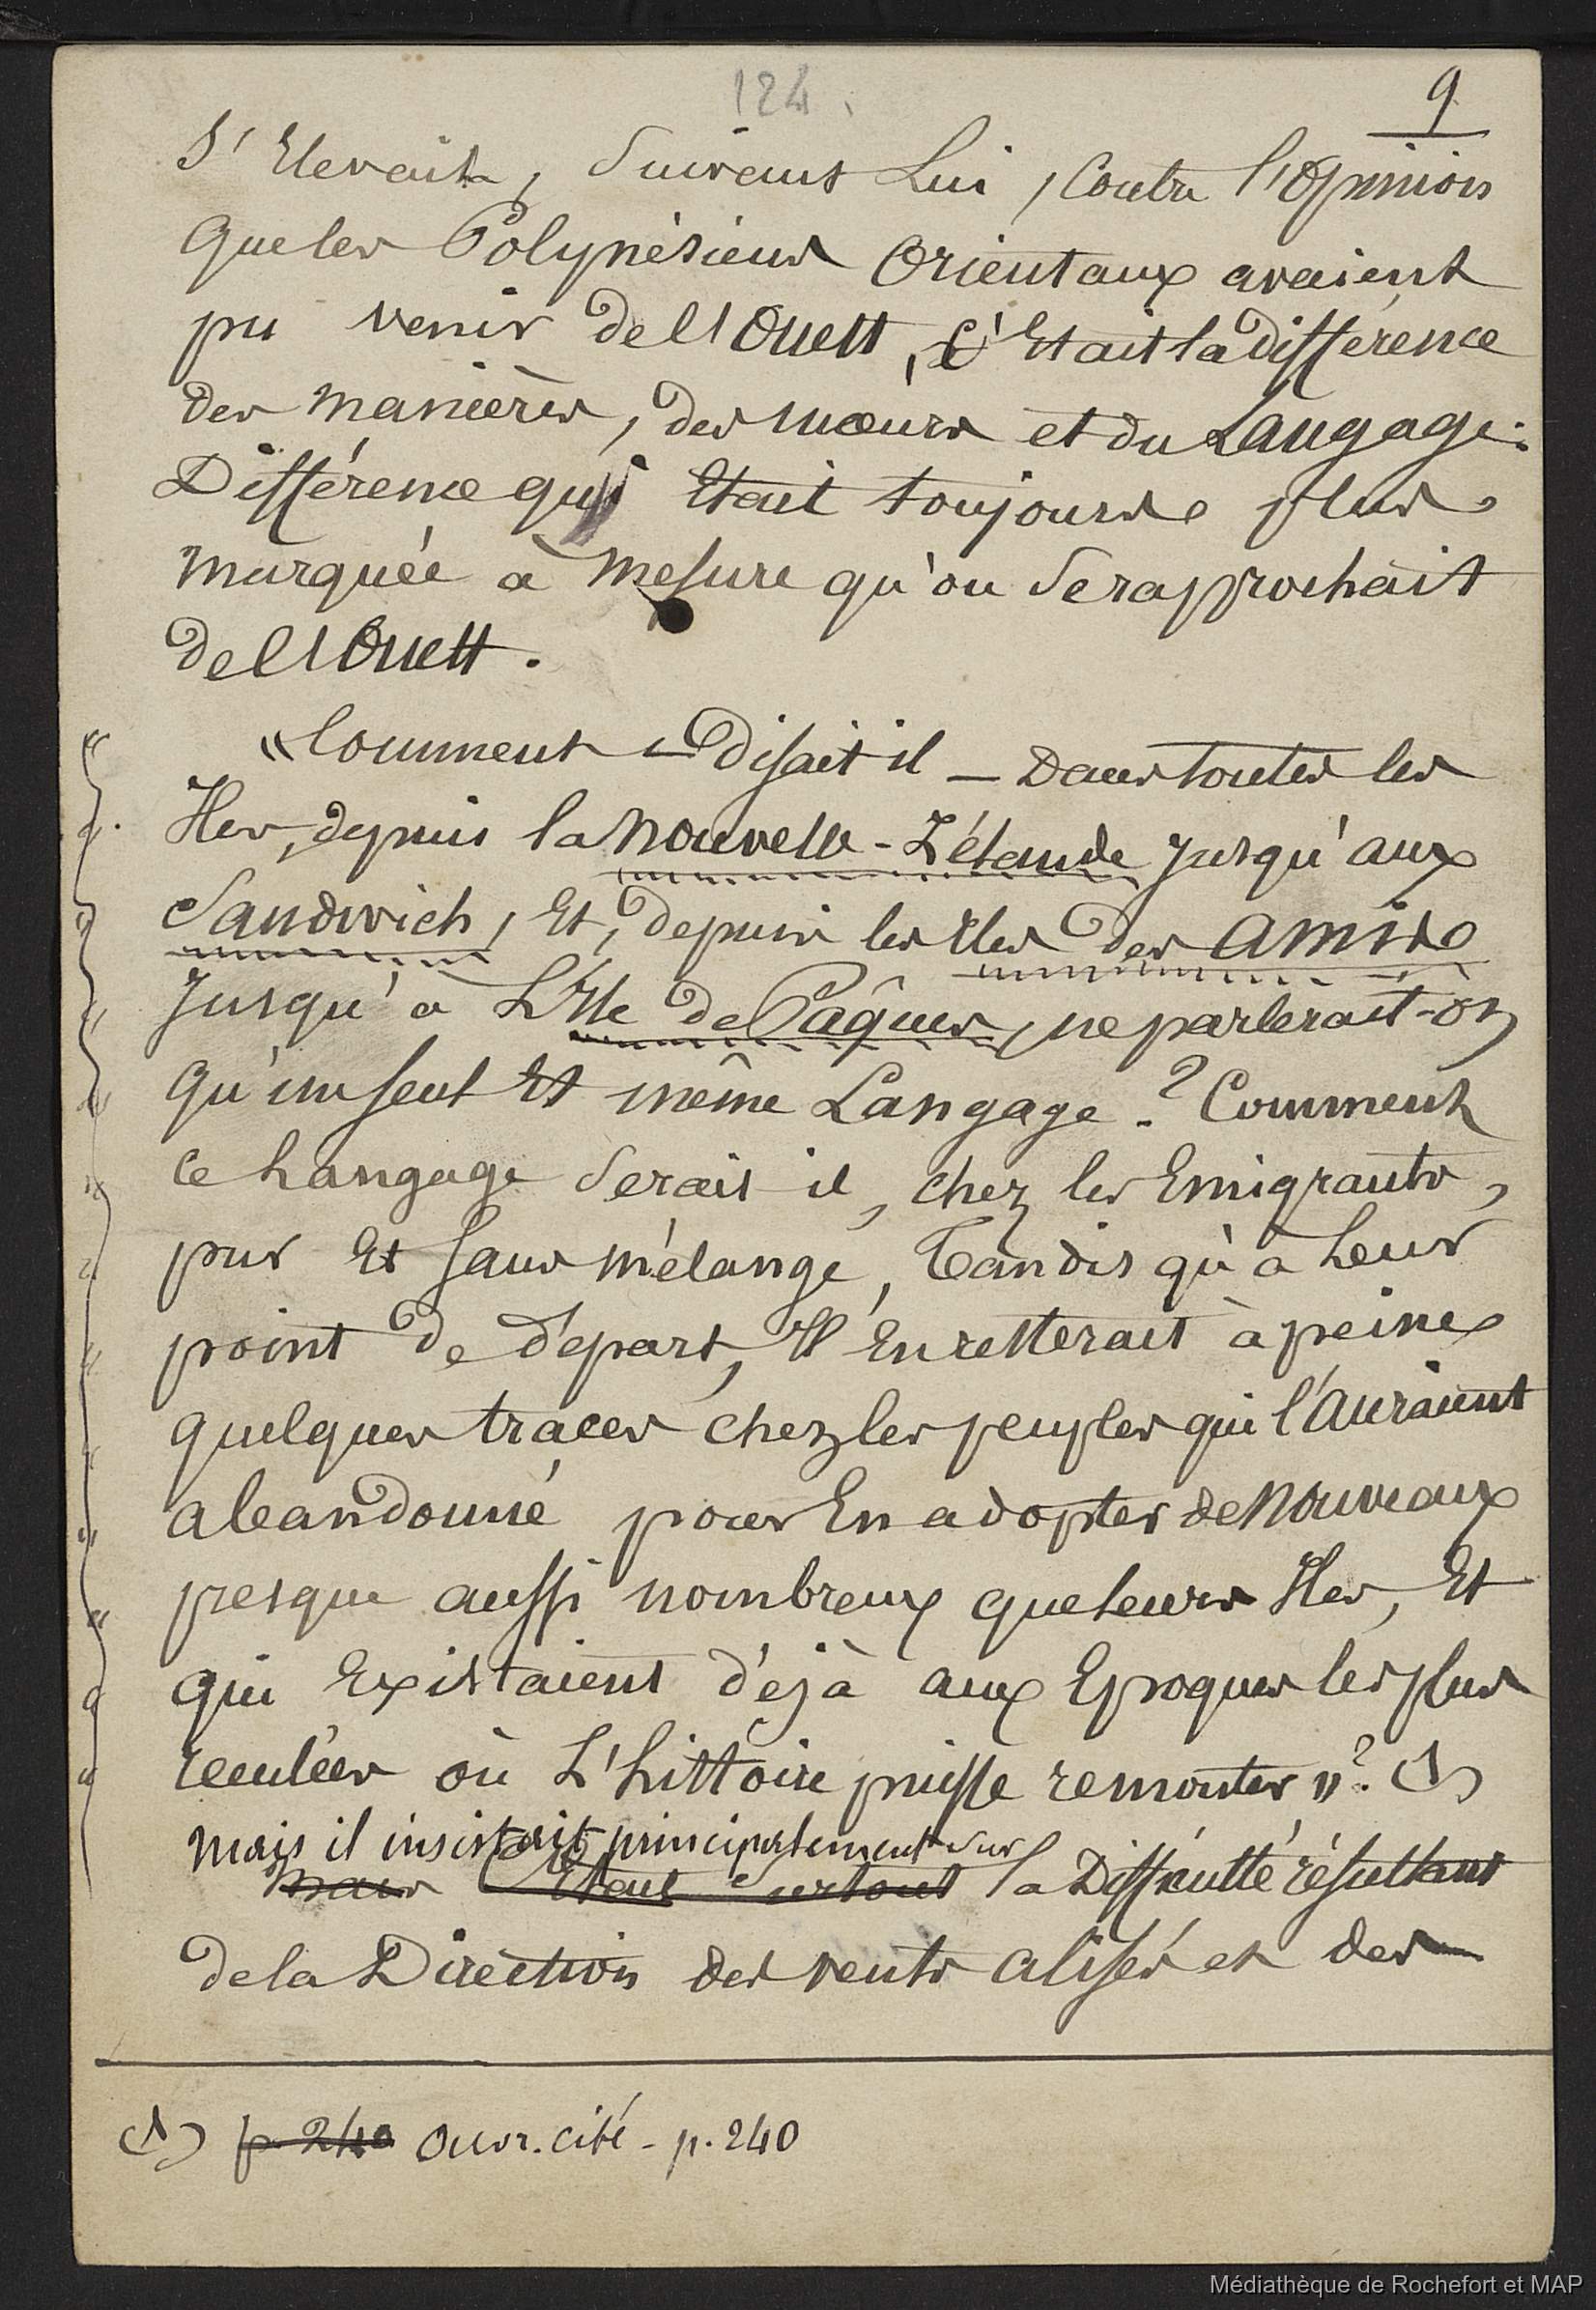 124.
9
S'Elevait, Suivant Lui, Contre l'Opinion
que les Polynésiens Orientaux avaient
pu venir de l'Ouest, c'Etait la différence
des manières, des mœurs et du Langage:
Différence qui Etait toujours plus
marquée à mesure qu'on se raprochait
de l'Ouest.
"Comment — Disait il — Dans toutes les
Iles, depuis la Nouvelle-Zélande jusqu'aux
Sandwich, Et, depuis les Iles des Amis
jusqu'à L'Ile de Pâques, ne parlerait-on
qu'un seul Et même Langage? Comment
ce Langage serait il, chez les Emigrants,
pur Et sans mélange, Tandis qu'à Leur
point de départ, Il En resterait à peine
quelques traces chez les peuples qui l'Auraient
abandonné pour En adopter de Nouveaux
presque aussi nombreux que leurs Iles, Et
qui Existaient déjà aux Epoques les plus
reculées où L'histoire puisse remonter"? (1)
mais il insistait principalement sur
mais Etait surtout la Difficulté résultant
de la Direction des vents alisés et des
(1) p. 240 Ouvr. cité - p. 240
Médiathèque de Rochefort et MAP